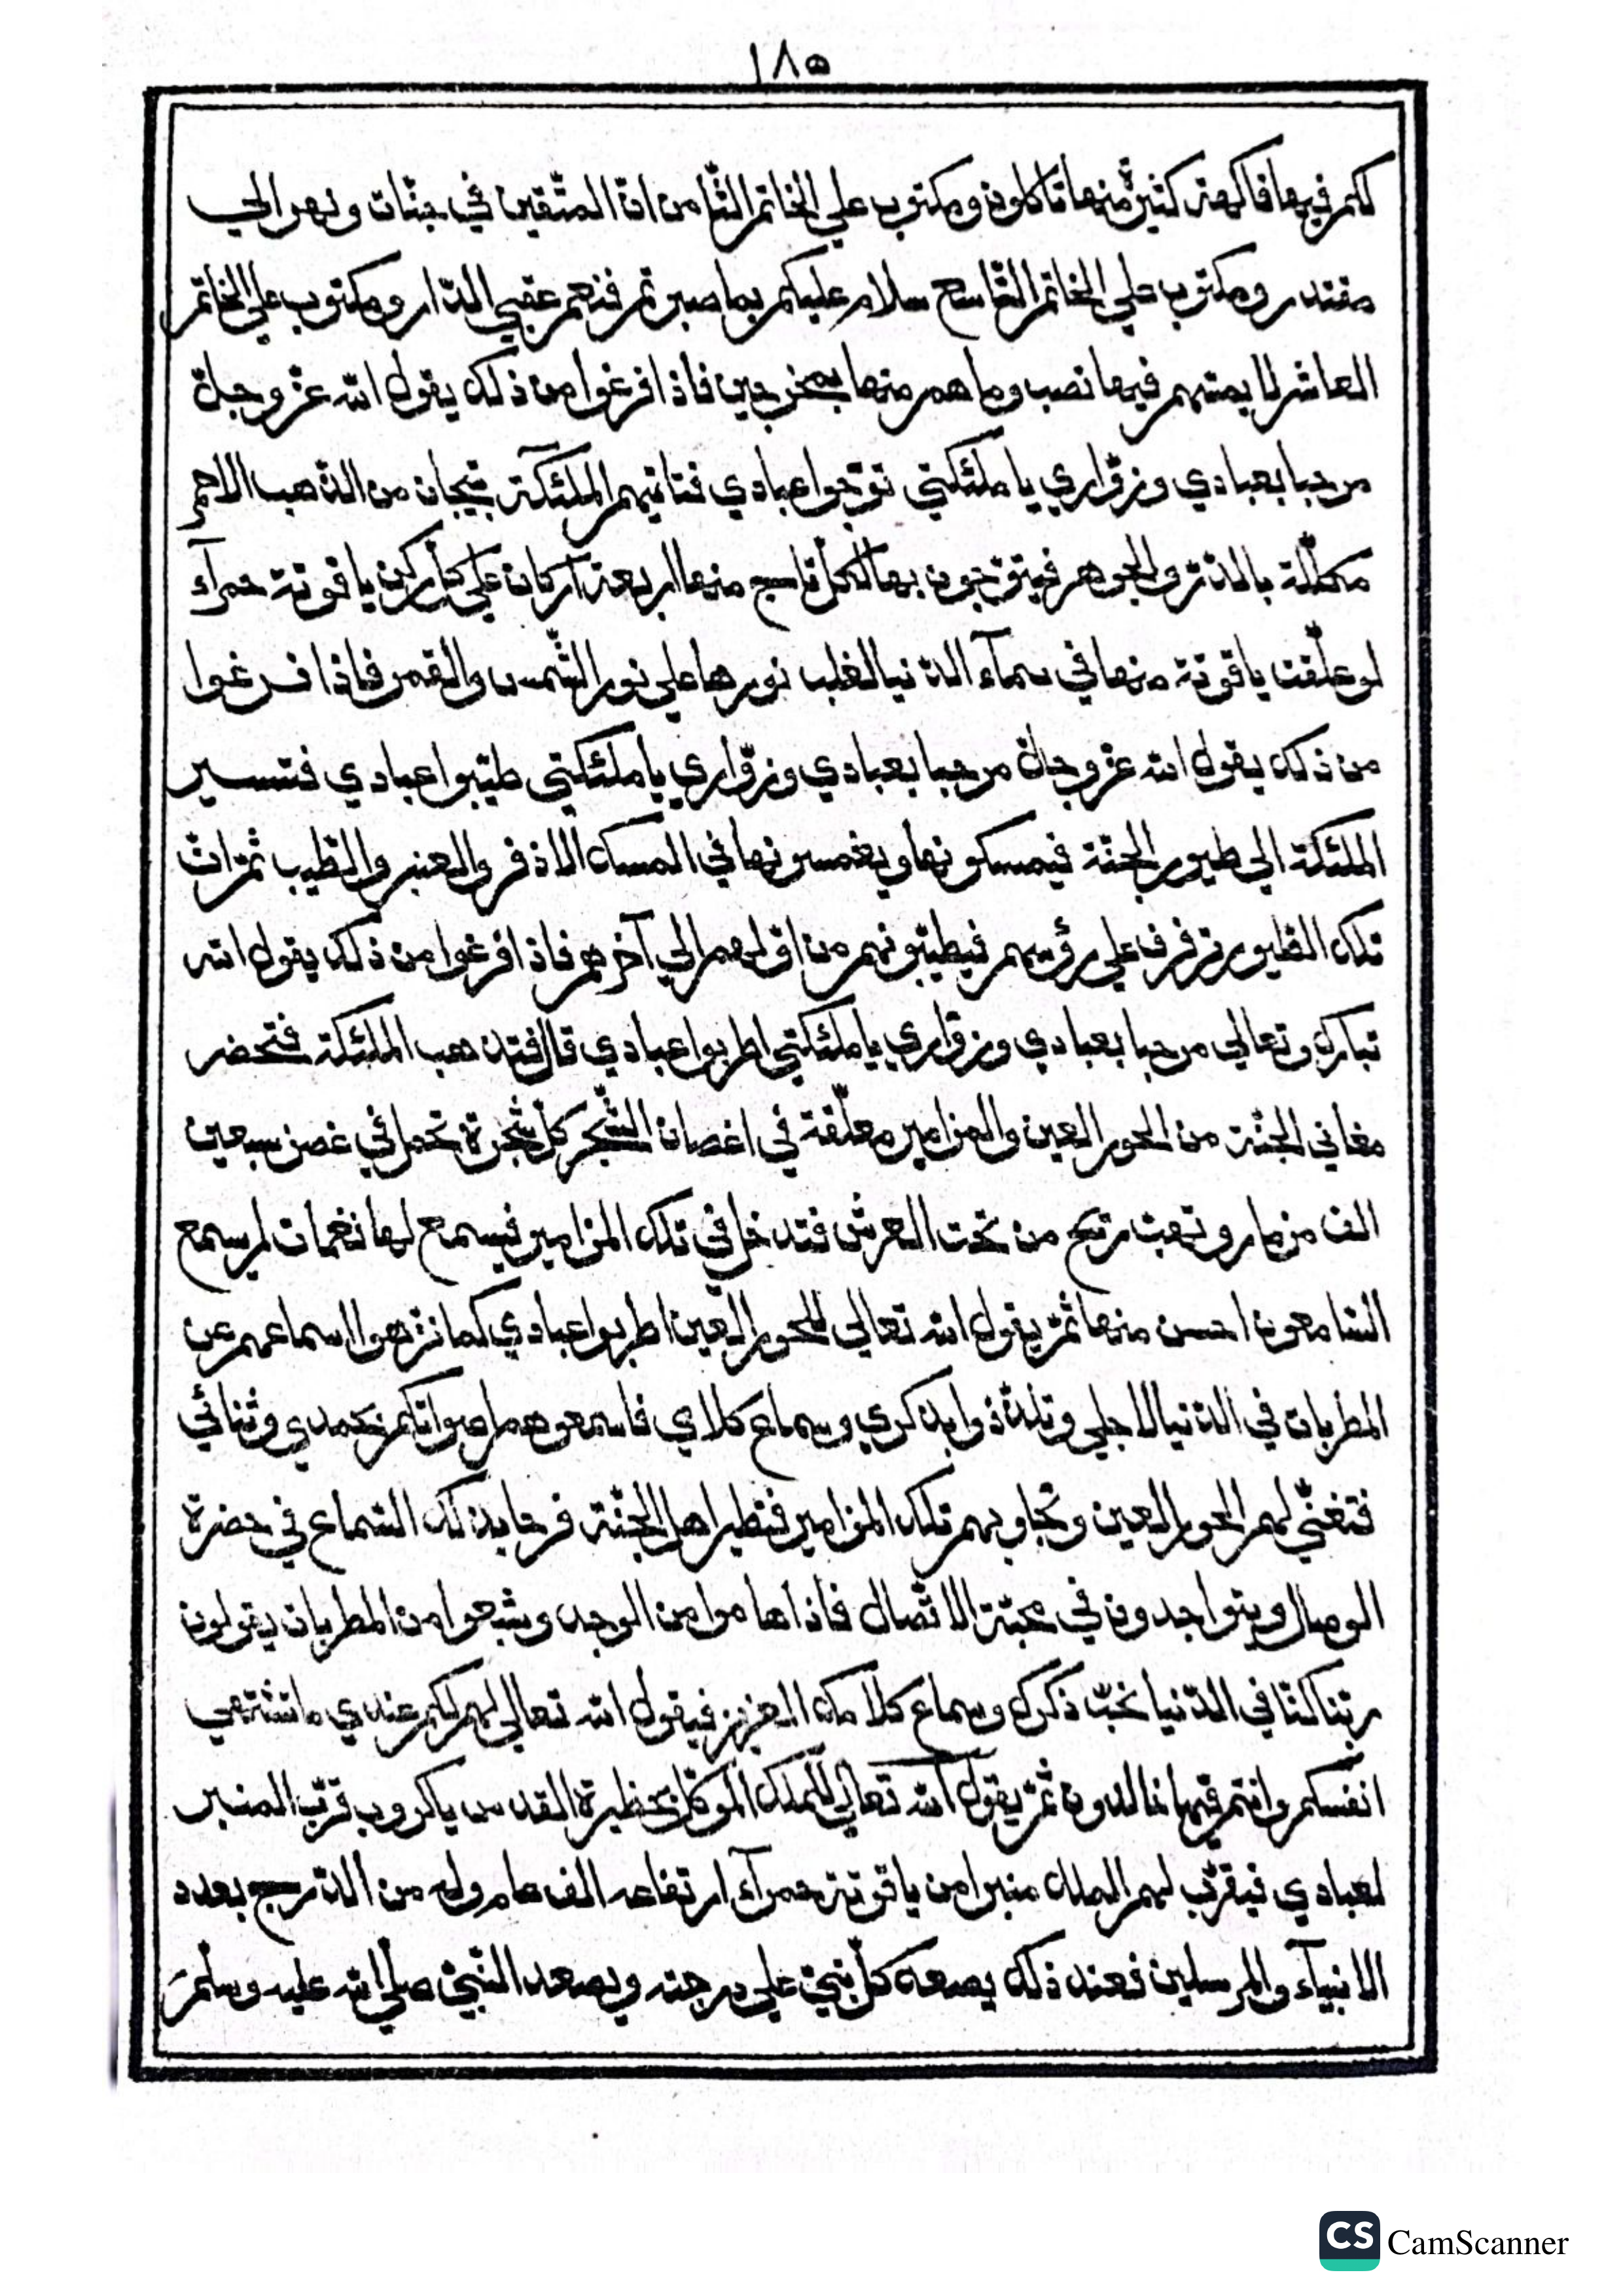 ١٨٥
لكم فيها فاكهة كثيرة منها تأكلون ومكتوب علي الخاتم الثّامن انّ المتّقين في جنّات ونهر الحي
مقتدر ومكتوب علي الخاتم التّاسع سلام عليكم بما صبرتم فنعم عقبي الدّار ومكتوب علي الخاتم
العاشر لا يمسّهم فيها نصب وما هم منها بمخرجين فاذا فرغوا من ذلك يقول الله عزّ وجلّ
مرحبا بعبادي وزوّاري يا ملئكتي توّجوا عبادي فتاتيهم الملئكة بتيجان من الذّهب الاحمر
مكلّلة بالدّر والجوهر فيتوّجون بها لكلّ تاج منها اربعة اركان علي كلّ ركن ياقوتة حمرآء
لو علّقت ياقوتة منها في سمآء الدّنيا لغلب نورها علي نور الشّمس والقمر فاذا فرغوا
من ذلك يقول الله عزّ وجلّ مرحبا بعبادي وزوّاري يا ملئكتي طيّبوا عبادي فتسير
الملئكة الي طيور الجنّة فيمسكونها ويغمسونها في المسك الاذفر والعنبر والطّيب ثمّ انّ
تلك الطّيور ترفرف علي رؤسهم فيطيّبونهم من اوّلهم الي آخرهم فاذا فرغوا من ذلك يقول الله
تبارك وتعالي مرحبا بعبادي وزوّاري يا ملئكتي اطربوا عبادي قال فتذهب الملئكة فتحضر
مغاني الجنّة من الحور العين والمزامير معلّقة في اغصان الشّجر كلّ شجرة تحمل في غصن سبعين
الف مزمار وتهبّ ريح من تحت العرش فتدخل في تلك المزامير فيسمع لها نغمات لم يسمع
السّامعون احسن منها ثمّ يقول الله تعالي للحور العين اطربوا عبادي كما نزّهوا اسماعهم عن
المطربات في الدّنيا لاجلي وتلذّذوا بذكري وسماع كلامي فاسمعوهم اصواتكم بحمدي وثنائي
فتغنّي لهم الحور العين وتجاوبهم تلك المزامير فتطير اهل الجنّة فرحا بذلك السّماع في حضرة
الوصال ويتواجدون في محبّة الاتّصال فاذا هاموا من الوجد وشبعوا من المطربات يقولون
ربّنا كنّا في الدّنيا نحبّ ذكرك وسماع كلامك العزيز فيقول الله تعالي لهم لكم عندي ما تشتهي
انفسكم وانتم فيها خالدون ثمّ يقول الله تعالي للملك الموكّل بحظيرة القدس يا كروب قرّب المنبر
لعبادي فيقرّب لهم الملك منبرا من ياقوتة حمرآء ارتفاعه الف عام وله من الدّرج بعدد
الانبيآء والمرسلين فعند ذلك يصعد كلّ نبيّ علي درجته ويصعد النّبيّ صلّي الله عليه وسلّم
CS CamScanner